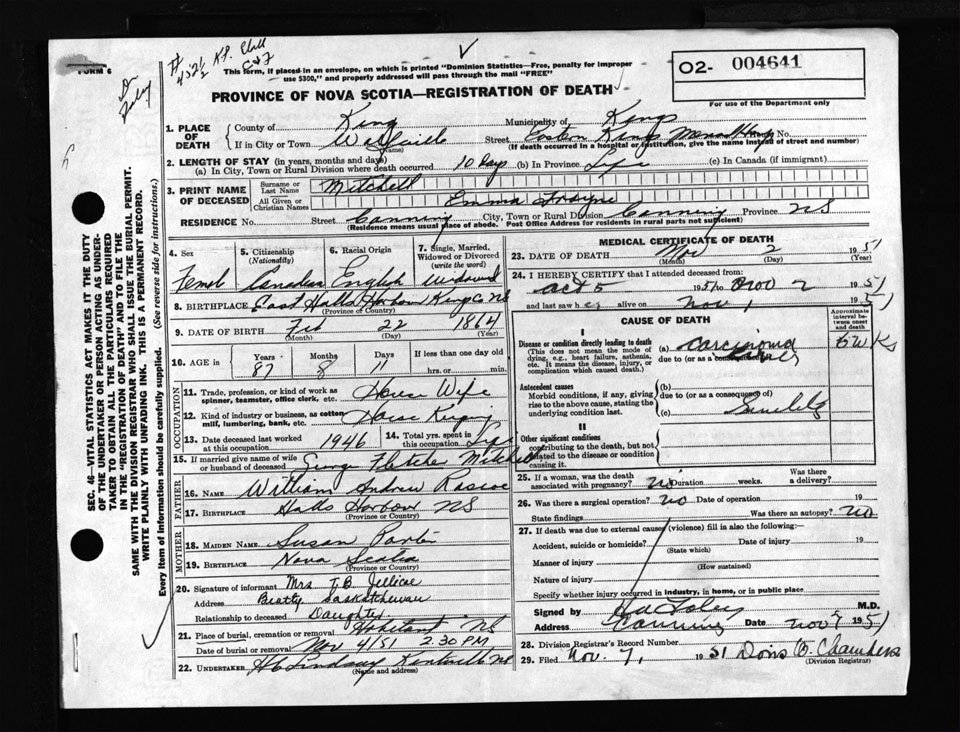 FORM 6
# 452½
K.P. Hall
This form, if placed in an envelope, on which is printed "Dominion Statistics—Free, penalty for improper
use $300," and properly addressed will pass through the mail "FREE"
02- 004641
For use of the Department only
PROVINCE OF NOVA SCOTIA—REGISTRATION OF DEATH
1. PLACE OF DEATH
County of King Municipality of Kings
If in City or Town Wolfville (Name) Street Eastern Kings Memorial Hosp No.
(If death occurred in a hospital or institution, give the name instead of street and number)
2. LENGTH OF STAY (in years, months and days)
(a) In City, Town or Rural Division where death occurred 10 Days (b) In Province Life (c) In Canada (if immigrant)
3. PRINT NAME OF DECEASED
Surname or Last Name Mitchell
All Given or Christian Names Emma
RESIDENCE No. Street Canning City, Town or Rural Division Canning Province NS
(Residence means usual place of abode. Post Office Address for residents in rural parts not sufficient)
4. Sex
Femal
5. Citizenship (Nationality)
Canadian
6. Racial Origin
English
7. Single, Married, Widowed or Divorced (write the word)
Widowed
8. BIRTHPLACE East Halls Harbour Kings Co NS
(Province or Country)
9. DATE OF BIRTH Feb 22 1864
(Month) (Day) (Year)
10. AGE in Years Months Days If less than one day old
87 8 11 hrs. or min.
OCCUPATION
11. Trade, profession, or kind of work as spinner, teamster, office clerk, etc. House Wife
12. Kind of industry or business, as cotton mill, lumbering, bank, etc. House Keeping
13. Date deceased last worked at this occupation 1946
14. Total yrs. spent in this occupation Life
15. If married give name of wife or husband of deceased George Fletcher Mitchell
FATHER
16. NAME William Andrew Rascoe
17. BIRTHPLACE Halls Harbour NS
(Province or Country)
MOTHER
18. MAIDEN NAME Susan
19. BIRTHPLACE Nova Scotia
(Province or Country)
20. Signature of informant Mrs T.B. Jellicoe
Address Beatty Saskatchewan
Relationship to deceased Daughter
21. Place of burial, cremation or removal Habitant NS
Date of burial or removal Nov 4/51 2.30 PM
22. UNDERTAKER H Lindsay Kentville NS
(Name and address)
MEDICAL CERTIFICATE OF DEATH
23. DATE OF DEATH Nov 2 1951
(Month) (Day) (Year)
24. I HEREBY CERTIFY that I attended deceased from:
Oct 5 1951 to Nov 2 1951
and last saw her alive on Nov 1 1951
CAUSE OF DEATH
Approximate interval between onset and death
I
Disease or condition directly leading to death
(This does not mean the mode of dying, e.g., heart failure, asthenia, etc. It means the disease, injury, or complication which caused death.)
(a) Carcinoma
due to (or as a consequence of)
6 Wks
Antecedent causes
Morbid conditions, if any, giving rise to the above cause, stating the underlying condition last.
(b)
due to (or as a consequence of)
(c) Senility
II
Other significant conditions
contributing to the death, but not related to the disease or condition causing it.
25. If a woman, was the death associated with pregnancy? no Duration weeks. Was there a delivery?
26. Was there a surgical operation? no Date of operation 19
State findings Was there an autopsy? no
27. If death was due to external causes (violence) fill in also the following:—
Accident, suicide or homicide? Date of injury 19
(State which)
Manner of injury
(How sustained)
Nature of injury
Specify whether injury occurred in industry, in home, or in public place
Signed by M.D.
Address Canning Date Nov 1951
28. Division Registrar's Record Number
29. Filed Nov. 7, 1951 Doris O. Chambers
(Division Registrar)
SEC. 46—VITAL STATISTICS ACT MAKES IT THE DUTY
OF THE UNDERTAKER OR PERSON ACTING AS UNDER-
TAKER TO OBTAIN ALL THE PARTICULARS REQUIRED
IN THE "REGISTRATION OF DEATH" AND TO FILE THE
SAME WITH THE DIVISION REGISTRAR WHO SHALL ISSUE THE BURIAL PERMIT.
WRITE PLAINLY WITH UNFADING INK. THIS IS A PERMANENT RECORD.
Every Item of Information should be carefully supplied. (See reverse side for instructions.)